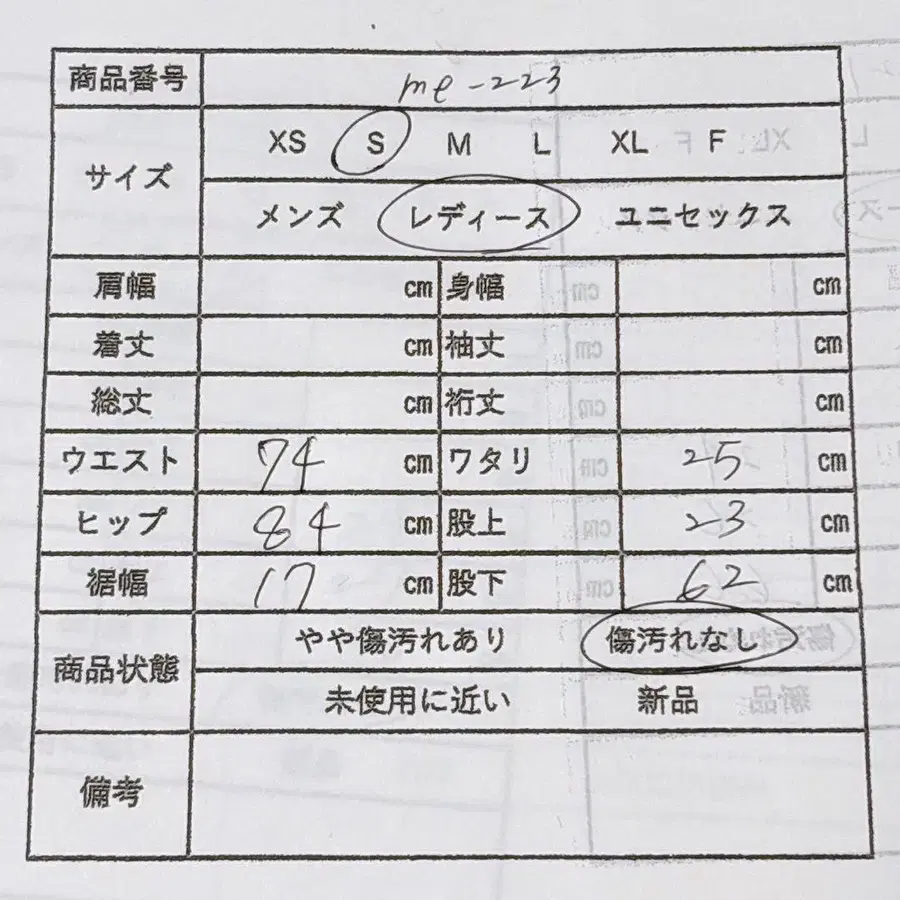 商品番号 me-223
サイズ XS S M L XL F
メンズ レディース ユニセックス
肩幅 cm 身幅 cm
着丈 cm 袖丈 cm
総丈 cm 裄丈 cm
ウエスト 74 cm ワタリ 25 cm
ヒップ 84 cm 股上 23 cm
裾幅 17 cm 股下 62 cm
商品状態 やや傷汚れあり 傷汚れなし
未使用に近い 新品
備考